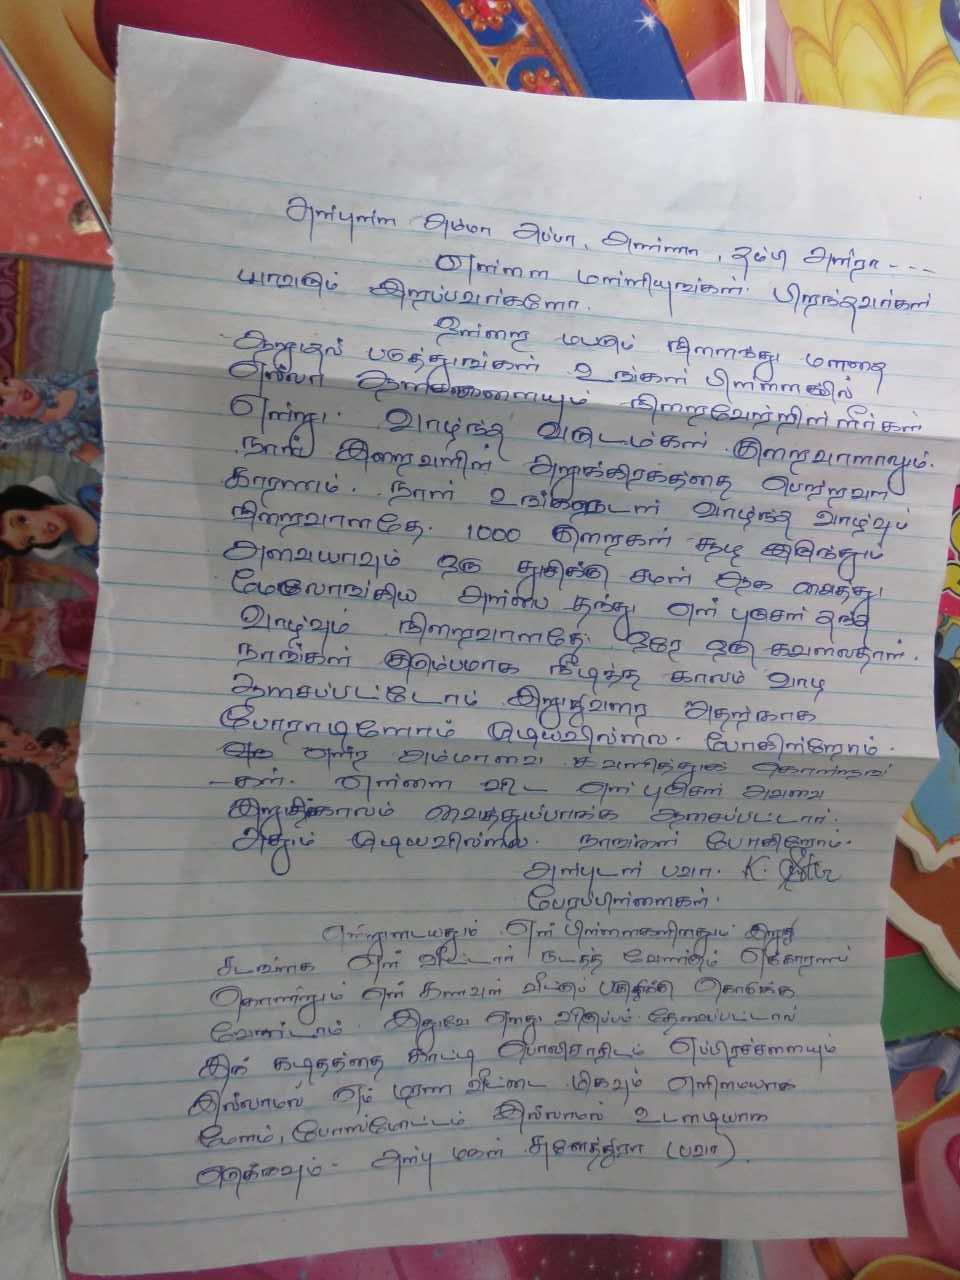 அன்புள்ள அம்மா அப்பா, அண்ணா, தம்பி அனிறா ---
என்னை மன்னியுங்கள். பிறந்தவர்கள்
யாவரும் இறப்பவர்களே.
ஒன்றை மட்டும் நினைத்து மனதை
ஆறுதல் படுத்துங்கள். உங்கள் பிள்ளையின்
எல்லா ஆசைகளையும் நிறைவேற்றினீர்கள்
என்று. வாழ்ந்த வருடங்கள் குறைவானாலும்.
நான் இறைவனின் அனுக்கிரகத்தை பெற்றவள்
காரணம். நான் உங்களுடன் வாழ்ந்த வாழ்வு
நிறைவானதே. 1000 குறைகள் கூடி இருந்தும்
அவையாவும் ஒரு தூசிக்கு சமன் ஆக வைத்து
மேலோங்கிய அன்பை தந்து என் புருசன் தந்த
வாழ்வும் நிறைவானதே. ஒரே ஒரு கவலைதான்.
நாங்கள் குடும்பமாக நீடித்த காலம் வாழ
ஆசைப்பட்டோம் இறுதிவரை அதற்காக
போராடினோம் முடியவில்லை. போகின்றோம்.
என்ர அம்மாவை கவனித்துக் கொள்ளுங்
-கள். என்னை விட என் புருசன் அவவை
இறுதிக்காலம் வைத்துப்பார்க்க ஆசைப்பட்டார்.
அதும் முடியவில்லை. நாங்கள் போகிறோம்.
அன்புடன் பவா. K.
பேரப்பிள்ளைகள்.
என்னுடையதும் என் பிள்ளைகளினதும் இறுதி
கடன்கள் என் வீட்டார் நடத்த வேண்டும் எக்காரணம்
கொண்டும் என் கணவன் வீட்டுப் பகுதிக்கு கொடுக்க
வேண்டாம். இதுவே எனது விருப்பம். தேவைப்பட்டால்
இக் கடிதத்தை காட்டி பொலிசாரிடம் எப்பிரச்சனையும்
இல்லாமல் எம் மரண வீட்டை மிகவும் எளிமையாக
மேளம், போஸ்மோட்டம் இல்லாமல் உடனடியாக
எடுக்கவும். அன்பு மகள் சுனேத்திரா (பவா).